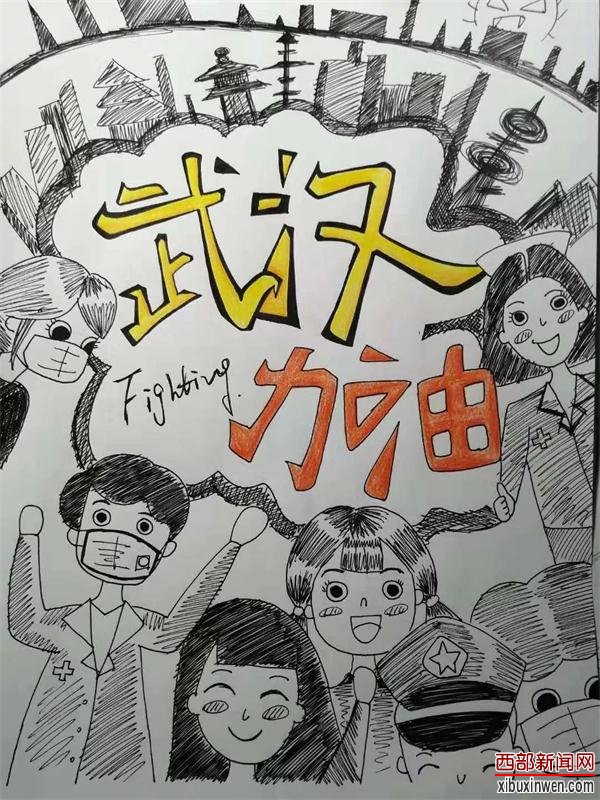 武汉
Fighting.
加油
西部新闻网
xibuxinwen.com